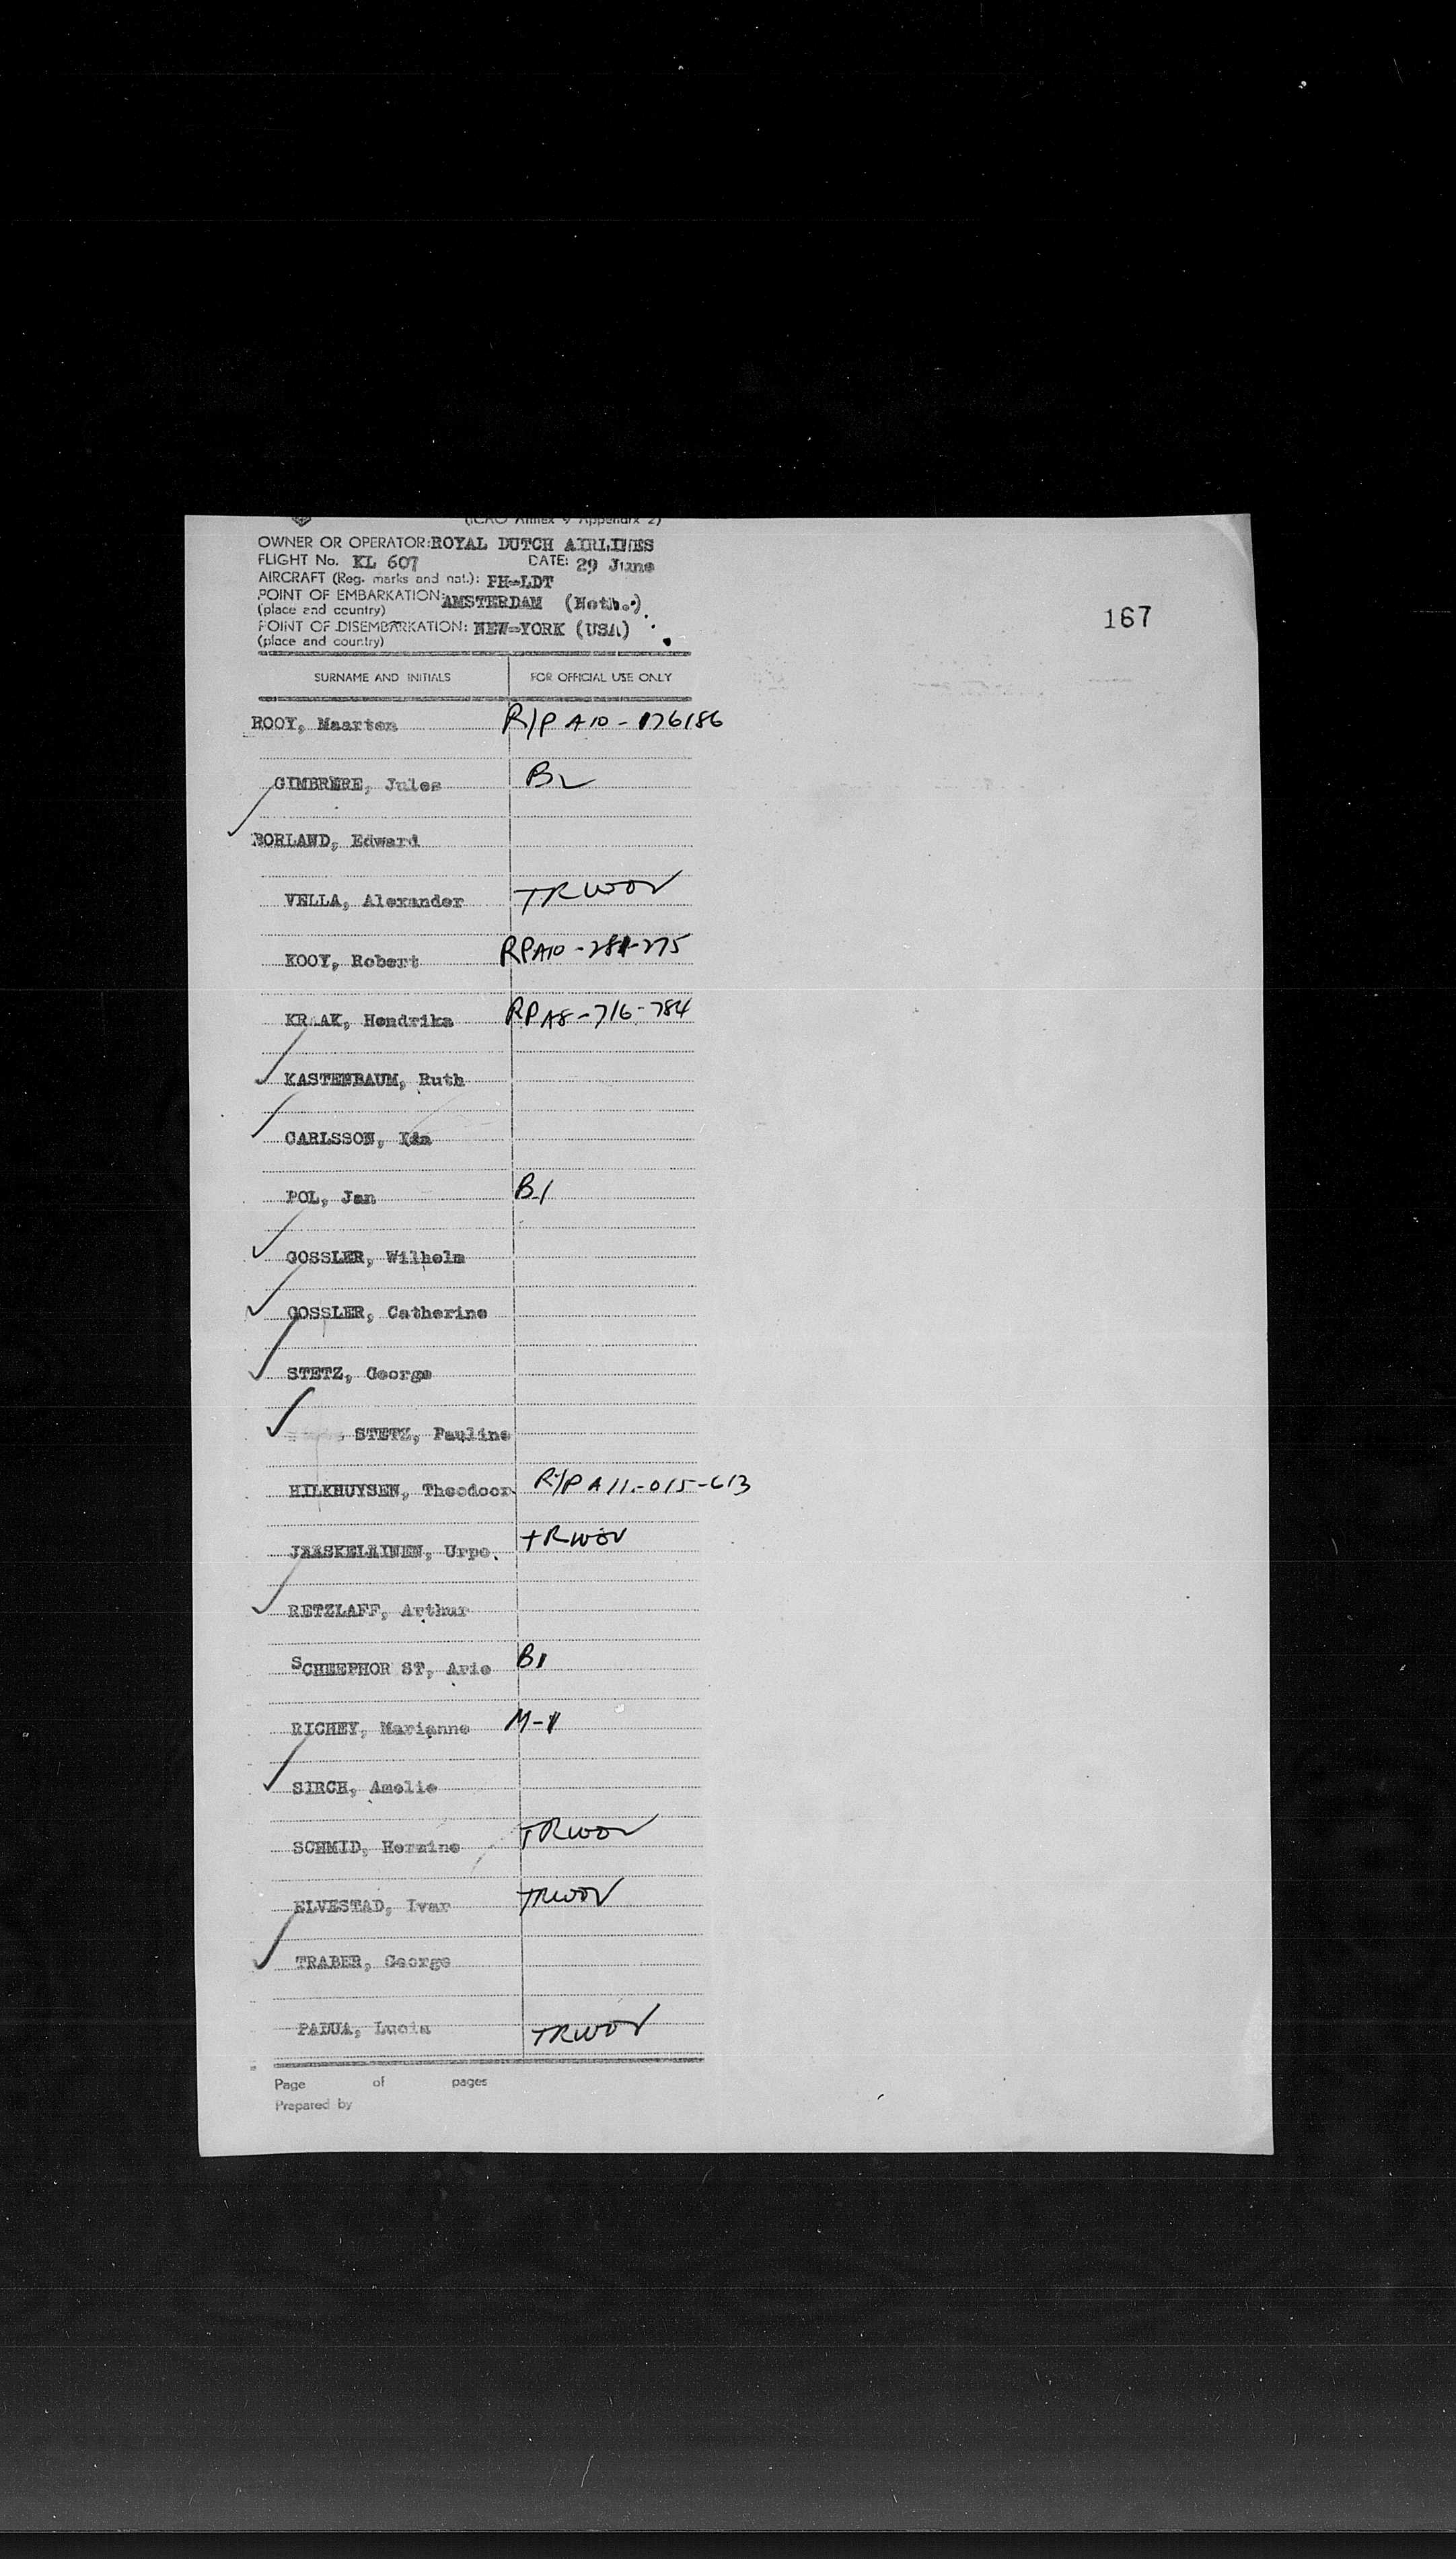 (ICAO Annex 9 Appendix 2)
OWNER OR OPERATOR: ROYAL DUTCH AIRLINES
FLIGHT No. KL 607 DATE: 29 June
AIRCRAFT (Reg. marks and nat.): PH-LDT
POINT OF EMBARKATION: AMSTERDAM (Neth.)
(place and country)
167
POINT OF DISEMBARKATION: NEW-YORK (USA)
(place and country)
SURNAME AND INITIALS FOR OFFICIAL USE ONLY
ROOY, Maarten R/P A10-176186
GIMBRERE, Jules B2
BORLAND, Edward
VELLA, Alexander TRWOV
KOOY, Robert RPA10-281-275
KRAAK, Hendrika RPA8-716-784
KASTENBAUM, Ruth
CARLSSON, Ida
POL, Jan B1
GOSSLER, Wilhelm
GOSSLER, Catherine
STETZ, George
STETZ, Pauline
HILKHUYSEN, Theodoor R/P A11-015-613
JAASKELAINEN, Urpo TRWOV
RETZLAFF, Arthur
SCHEEPHORST, Arie B1
RICHEY, Marianne M-1
SIRCH, Amelie
SCHMID, Hermine TRWOV
ELVESTAD, Ivar TRWOV
TRABER, George
PADUA, Lucia TRWOV
Page of pages
Prepared by